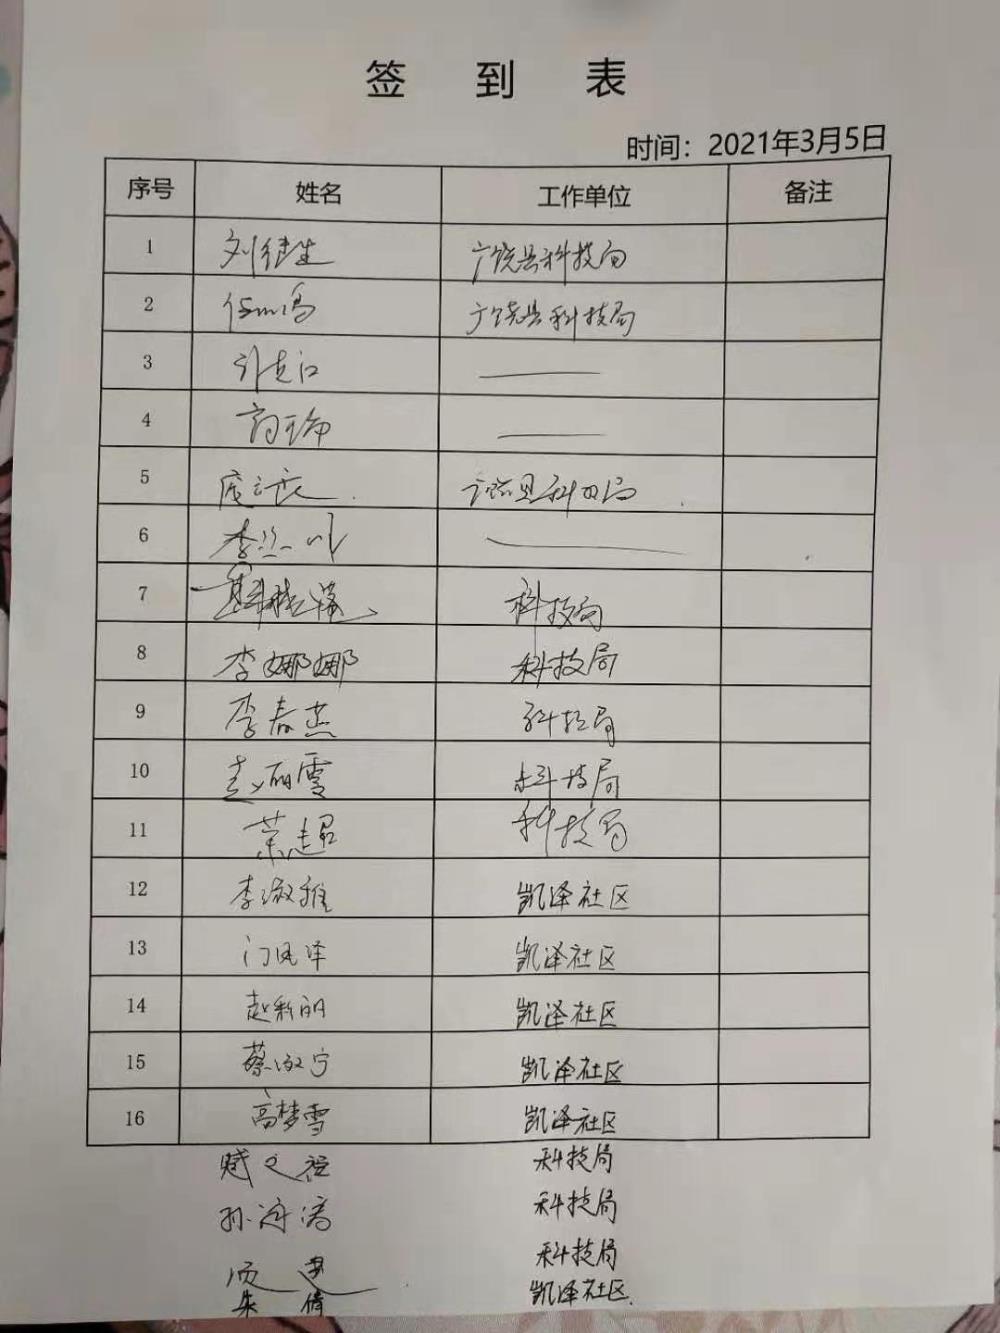 签到表
时间：2021年3月5日
序号 姓名 工作单位 备注
1 刘继生 广饶县科技局
2 广饶县科技局
3
4
5 科技局
6 李
7 科技局
8 李娜娜 科技局
9 李春燕 科技局
10 赵丽雯 科技局
11 荣超 科技局
12 李淑雅 凯泽社区
13 门凤泽 凯泽社区
14 赵彩丽 凯泽社区
15 蔡淑宁 凯泽社区
16 高梦雪 凯泽社区
科技局
孙海涛 科技局
科技局
朱倩 凯泽社区